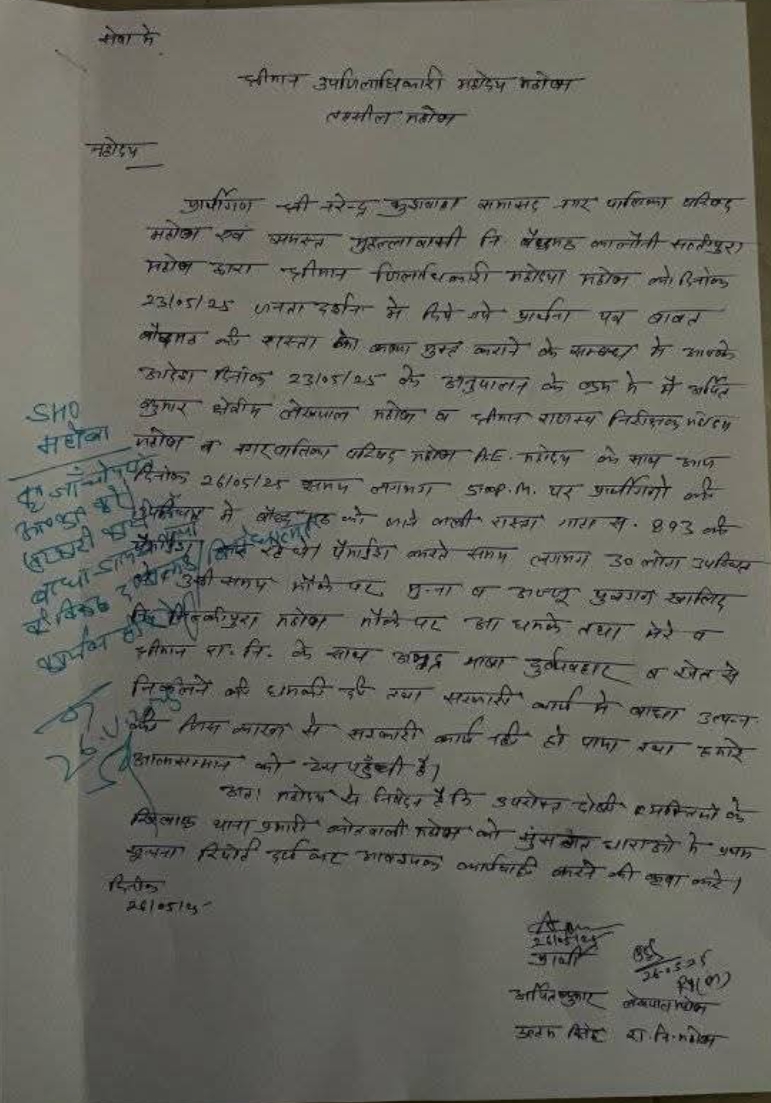 सेवा में
श्रीमान उपजिलाधिकारी महोदय महोबा
तहसील महोबा
महोदय
प्रार्थीगण श्री नरेन्द्र कुशवाहा सभासद नगर पालिका परिषद
महोबा एवं समस्त मुहल्लावासी नि. कालौनी
महोबा द्वारा श्रीमान जिलाधिकारी महोदया महोबा को दिनांक
23/05/25 जनता दर्शन में दिये गये प्रार्थना पत्र बावत
की रास्ता कब्जा मुक्त कराने के सम्बन्ध में आपके
आदेश दिनांक 23/05/25 के अनुपालन के क्रम में मैं अर्पित
कुमार क्षेत्रीय लेखपाल महोबा व श्रीमान राजस्व निरीक्षक महोदय
महोबा व नगरपालिका परिषद महोबा A.E. महोदय के साथ आज
दिनांक 26/05/25 समय लगभग P.M. पर प्रार्थीगणों की
में को जाने वाली रास्ता गाटा स. 893 की
रहे थे। पैमाईश करते समय लगभग 30 लोग उपस्थित
उसी समय मौके पर मुन्ना व पुत्रगण खालिद
महोबा मौके पर आ धमके तथा मेरे व
श्रीमान रा. नि. के साथ अभद्र भाषा दुर्व्यवहार व खेत से
निकलने की धमकी दी तथा सरकारी कार्य में बाधा उत्पन्न
की जिस कारण से सरकारी कार्य नहीं हो पाया तथा हमारे
आत्मसम्मान को ठेस पहुँची है।
अतः महोदय से निवेदन है कि उपरोक्त दोषी व्यक्तियों के
खिलाफ थाना प्रभारी कोतवाली महोबा को सुसंगत धाराओं में प्रथम
सूचना रिपोर्ट दर्ज कर आवश्यक कार्यवाही करने की कृपा करें।
दिनांक
26/05/25
SHO
महोबा
कृ
सरकारी कार्य
बाधा
के विरूद्ध
26/05/25
प्रार्थी
26-05-25
अर्पित कुमार लेखपाल महोबा
उत्तम सिंह रा. नि. महोबा